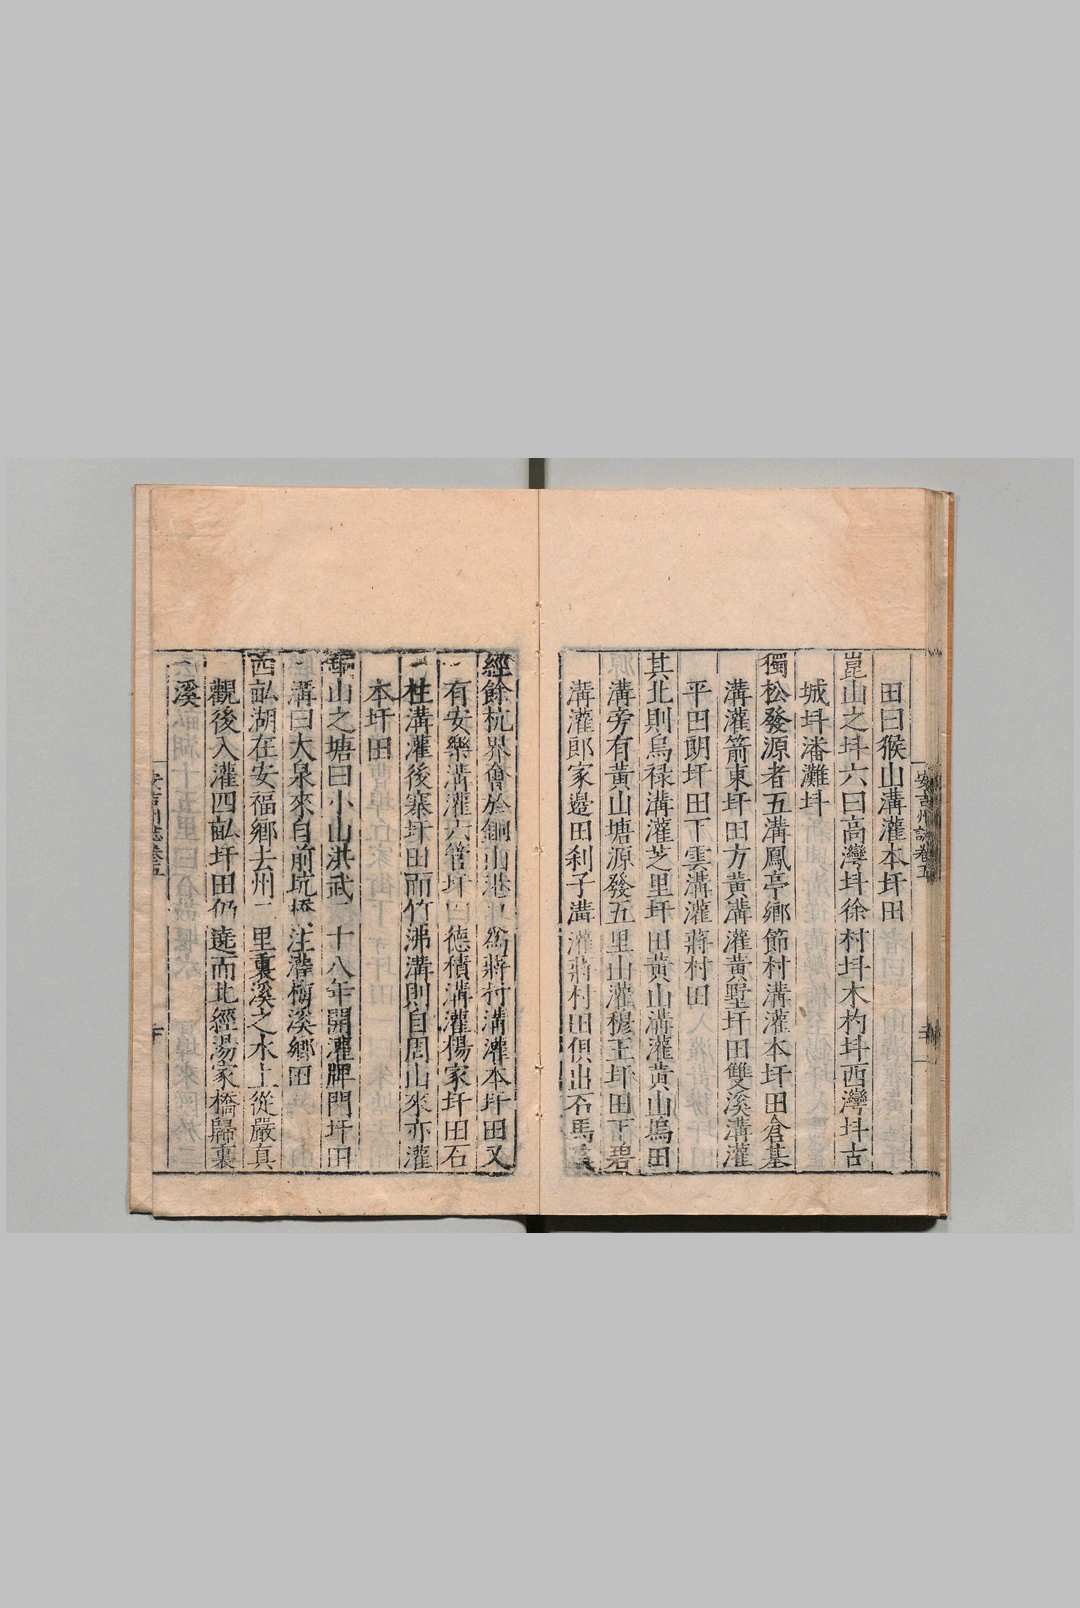 田曰猴山溝灌本圩田
崑山之圩六曰高灣圩徐村圩木杓圩西灣圩古
城圩潘灘圩
獨松發源者五溝鳳亭鄉節村溝灌本圩田倉基
溝灌箭東圩田方黃溝灌黃墅圩田雙溪溝灌
平田朗圩田下雲溝灌蔣村田
其北則烏禄溝灌芝里圩田黃山溝灌黃山塢田
溝旁有黃山塘源發五里山灌穆王圩田下碧
溝灌郎家邉田刹子溝灌蔣村田俱出石馬
經餘杭界會於銅山港為蔣村溝灌本圩田又
有安樂溝灌六管圩曰德積溝灌楊家圩田石
柱溝灌後寨圩田而竹沸溝則自周山來亦灌
本圩田
山之塘曰小山洪武二十八年開灌牌門圩田
溝曰大泉來自前坑橋注灌梅溪鄉田
西畆湖在安福鄉去州二里裏溪之水上從嚴真
觀後入灌四畆圩田仍遶而北經湯家橋歸裏
溪
安吉州誌卷五
安吉州誌卷五